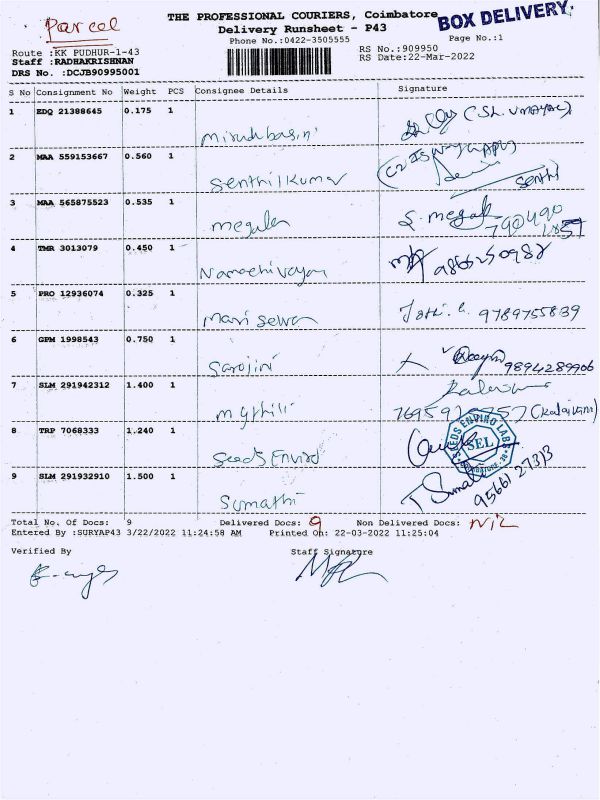 Parcel
THE PROFESSIONAL COURIERS, Coimbatore
BOX DELIVERY.
Delivery Runsheet - P43
Phone No.:0422-3505555
Page No.:1
Route :KK PUDHUR-1-43
RS No.:909950
Staff :RADHAKRISHNAN
RS Date:22-Mar-2022
DRS No. :DCJB90995001
S No Consignment No Weight PCS Consignee Details Signature
1 EDQ 21388645 0.175 1
2 MAA 559153667 0.560 1 Senthilkumar Senthi
3 MAA 565875523 0.535 1 megala S. megala
4 TMR 3013079 0.450 1 9865250982
5 PRO 12936074 0.325 1 9789755839
6 GPM 1998543 0.750 1 Sarojini 9894289906
7 SLM 291942312 1.400 1 Mythili
8 TRP 7068333 1.240 1 Seeds Enviro SEEDS ENVIRO LABS SEL
9 SLM 291932910 1.500 1 Sumathi 9566127313
Total No. Of Docs: 9 Delivered Docs: 9 Non Delivered Docs: NIL
Entered By :SURYAP43 3/22/2022 11:24:58 AM Printed On: 22-03-2022 11:25:04
Verified By Staff Signature